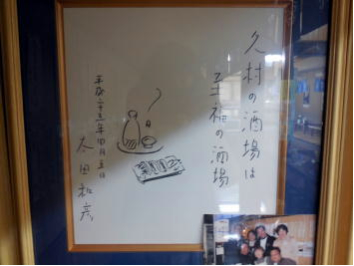 久村の酒場は
至福の酒場
平成二十三年四月三日
太田和彦